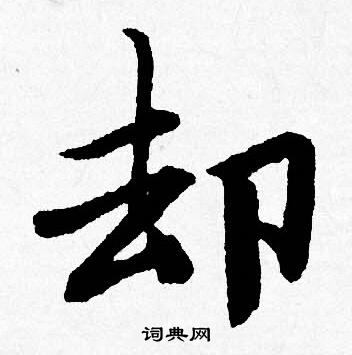 却
词典网